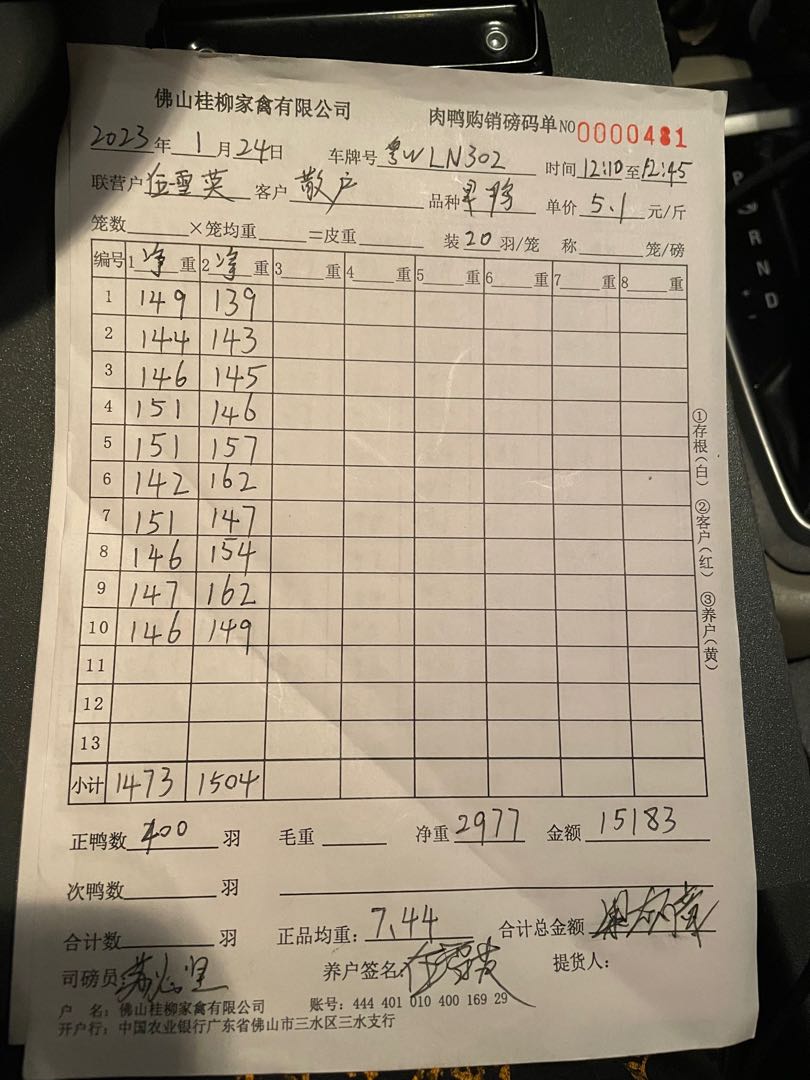 佛山桂柳家禽有限公司
肉鸭购销磅码单 NO 0000481
2023年 1月24日 车牌号 粤WLN302 时间12:10至12:45
联营户 伍雪英 客户 散户 品种 单价 5.1 元/斤
笼数 ×笼均重 =皮重 装20羽/笼 称 笼/磅
编号 1净重 2净重 3 重 4 重 5 重 6 重 7 重 8 重
1 149 139
2 144 143
3 146 145
4 151 146
5 151 157
6 142 162
7 151 147
8 146 154
9 147 162
10 146 149
11
12
13
小计 1473 1504
①存根(白) ②客户(红) ③养户(黄)
正鸭数 400 羽 毛重 净重 2977 金额 15183
次鸭数 羽
合计数 羽 正品均重: 7.44 合计总金额
司磅员: 养户签名: 提货人:
户 名: 佛山桂柳家禽有限公司 账号: 444 401 010 400 169 29
开户行: 中国农业银行广东省佛山市三水区三水支行
P
R
N
D